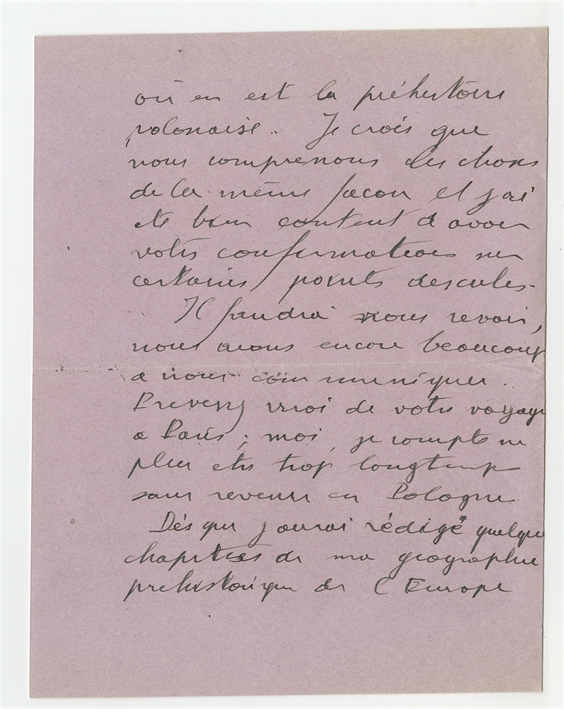 où en est la préhistoire
polonaise. Je crois que
nous comprenons les choses
de la même façon et j'ai
été bien content d'avoir
votre confirmation sur
certains points discutés.
Il faudra nous revoir,
nous avons encore beaucoup
à nous communiquer.
Prevenez moi de votre voyage
à Paris; moi, je compte ne
plus être trop longtemps
sans revenir en Pologne.
Dès que j'aurai rédigé quelques
chapitres de ma géographie
préhistorique de l'Europe